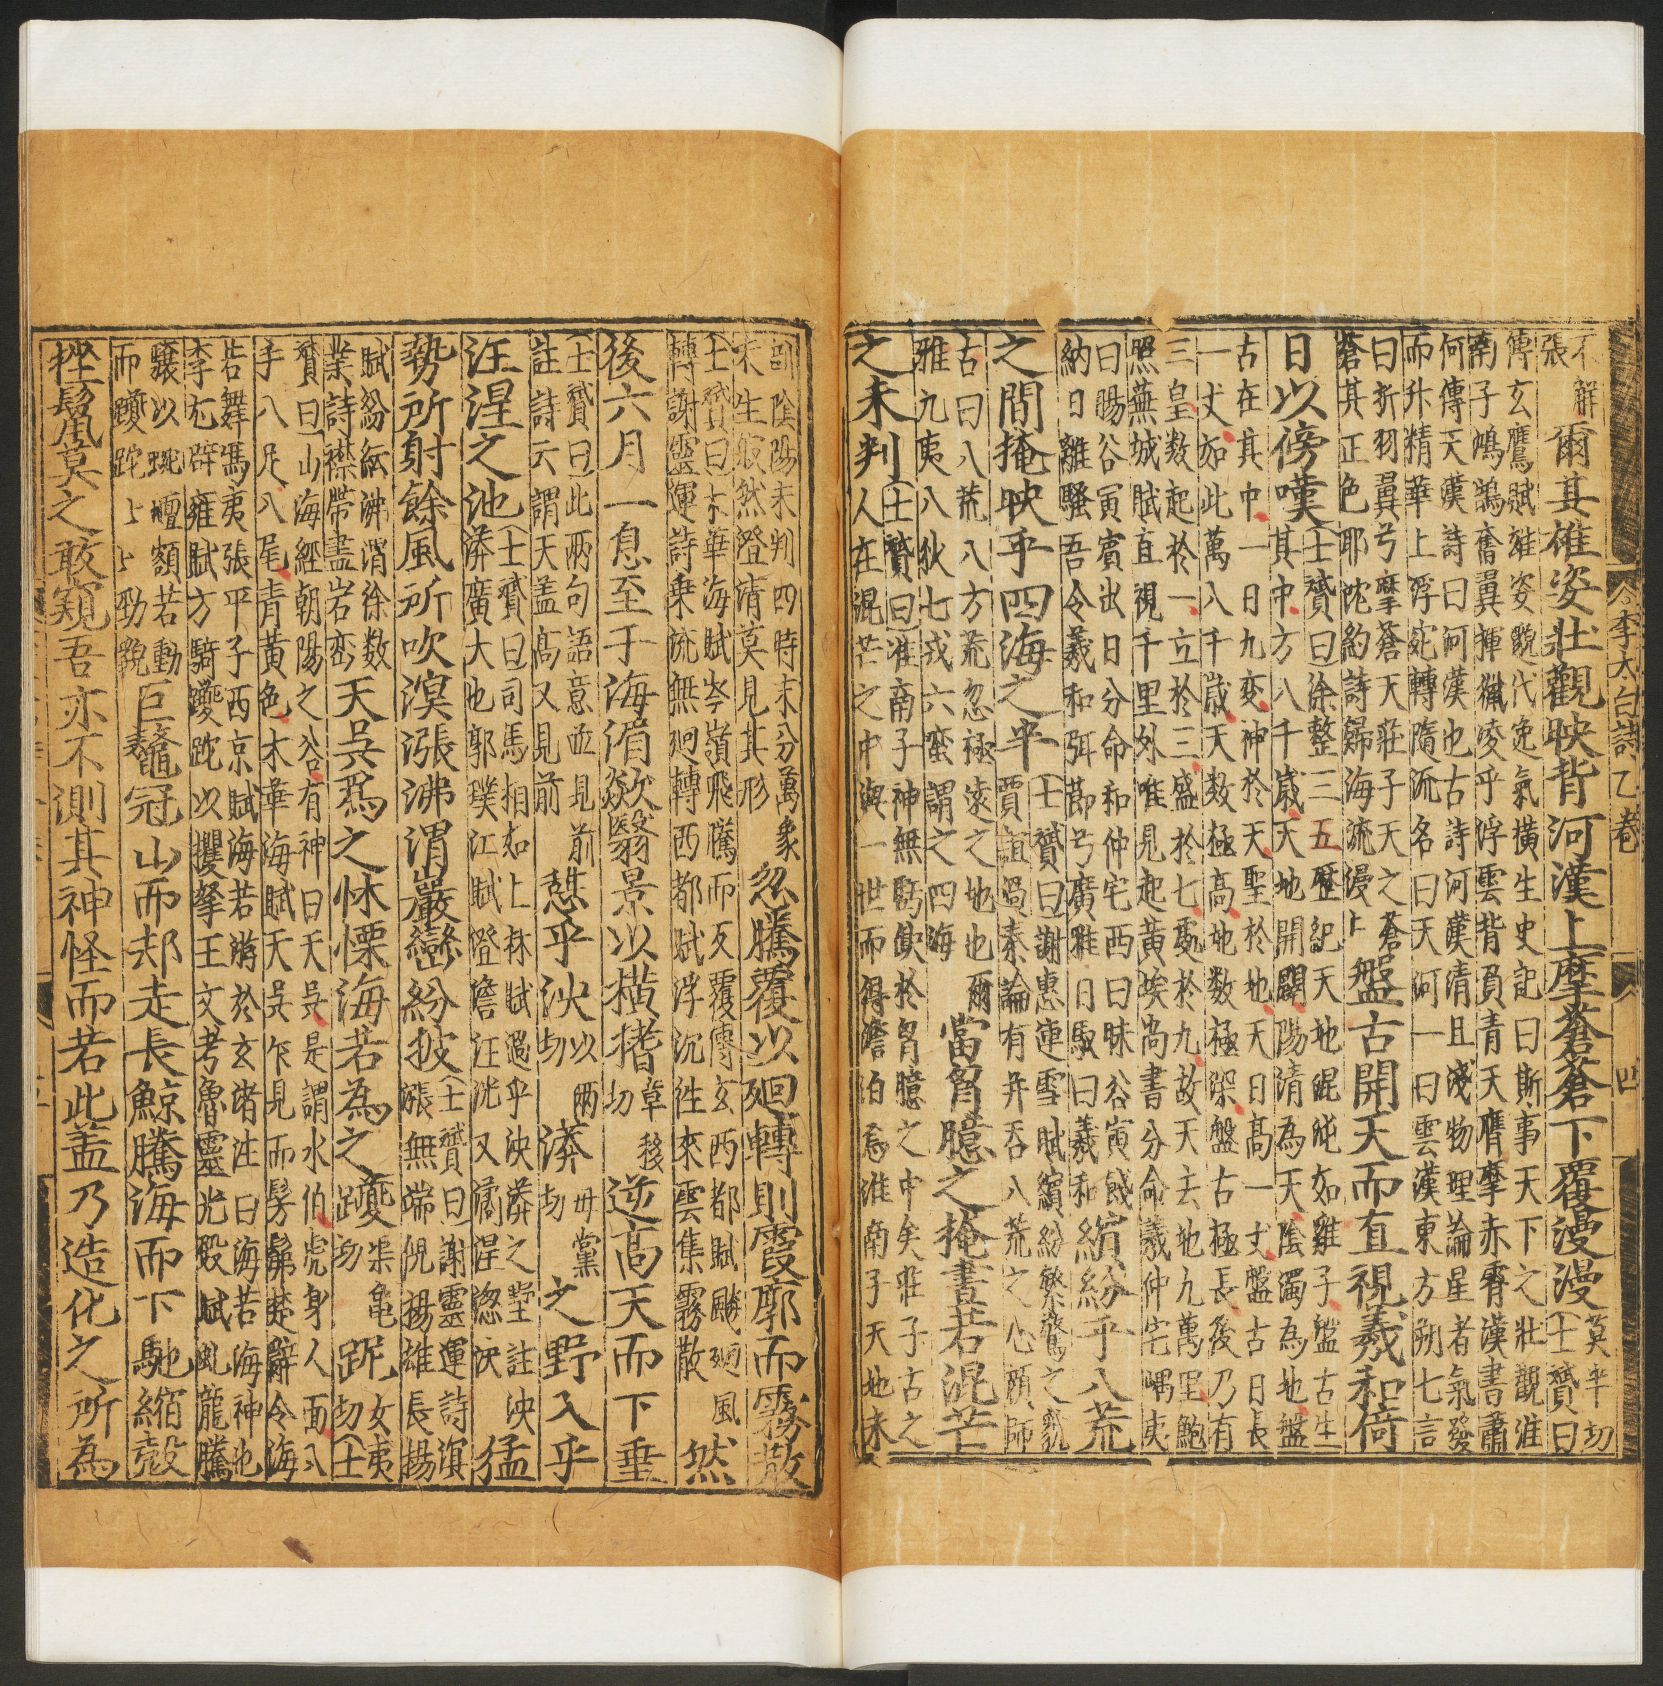 李太白詩乙卷 四
不解張爾其雄姿壯觀映背河漢上摩蒼蒼下覆漫漫莫半切士贇曰
傅玄鷹賦雄姿貌代逸氣橫生史記曰斯事天下之壯觀淮
南子鴻鵠奮翼揮㺑凌乎浮雲背負青天膺摩赤霄漢書蕭
何傳天漢詩曰河漢也古詩河漢清且淺物理論星者氣發
而升精華上浮宛轉隨流名曰天河一曰雲漢東方朔七言
曰折羽翼兮摩蒼天莊子天之蒼
蒼其正色耶沈約詩歸海流漫上
盤古開天而直視羲和倚
日以傍嘆士贇曰徐整三五歷紀天地混沌如雞子盤古生
其中方八千歲天地開闢陽清為天陰濁為地盤
古在其中一日九變神於天聖於地天日高一丈盤古日長
一丈如此萬八千歲天数極高地数極深盤古極長後乃有
三皇数起於一立於三盛於七處於九故天去地九萬里鮑
照蕪城賦直視千里外唯見起黃埃尚書分命羲仲宅嵎夷
曰暘谷寅賓出日分命和仲宅西曰昧谷寅餞
納日離騷吾令羲和弭節兮廣雅日馭曰羲和
繽紛乎八荒
之間掩映乎四海之半士贇曰謝惠連雪賦繽紛繁鶩之貌
賈誼過秦論有并吞八荒之心顔師
古曰八荒八方荒忽極遠之地也爾
雅九夷八狄七戎六蠻謂之四海
當胷臆之掩晝若混芒
之未判士贇曰淮南子神無虧缺於胷臆之中矣莊子古之
人在混芒之中與一世而得澹泊焉淮南子天地未
剖陰陽未判四時未分萬象
未生㲿然澄清莫見其形
忽騰覆以廻轉則霞廓而霧散
士贇曰木華海賦岑嶺飛騰而反覆傅玄西都賦飈廻風
轉謝靈運詩乗流無廻轉西都賦浮沉徃來雲集霧散
然
後六月一息至于海湄欻翳景以横㩉草移切逆高天而下垂
士贇曰此兩句語意並見前
註詩云謂天盖高又見前
憇乎泱以两切漭毋黨切之野入乎
汪湟之池士贇曰司馬相如上林賦過乎泱漭之墅註泱
漭廣大也郭璞江賦澄澹汪洸又滀湟淴泱
猛
勢所射餘風所吹溟漲沸渭巖巒紛披士贇曰謝靈運詩溟
漲無端倪揚雄長揚
賦紛紜沸渭徐数
業詩襟帶盡岩巒
天吳爲之怵慄海若為之躨渠龜切跜女夷切士
贇曰山海經朝陽之谷有神曰天吳是謂水伯虎身人面八
手八足八尾青黃色木華海賦天吳乍見而髣髴楚辭令海
若舞馮夷張平子西京賦海若游於玄渚注曰海若海神也
李尤辟雍賦方騎躨跎以攫拏王文考魯靈光殿賦虬龍騰
驤以蜿蟺頷若動
而躨跎上上勁貌
巨鼇冠山而却走長鯨騰海而下馳縮殻
挫鬛莫之敢窺吾亦不測其神怪而若此盖乃造化之所為